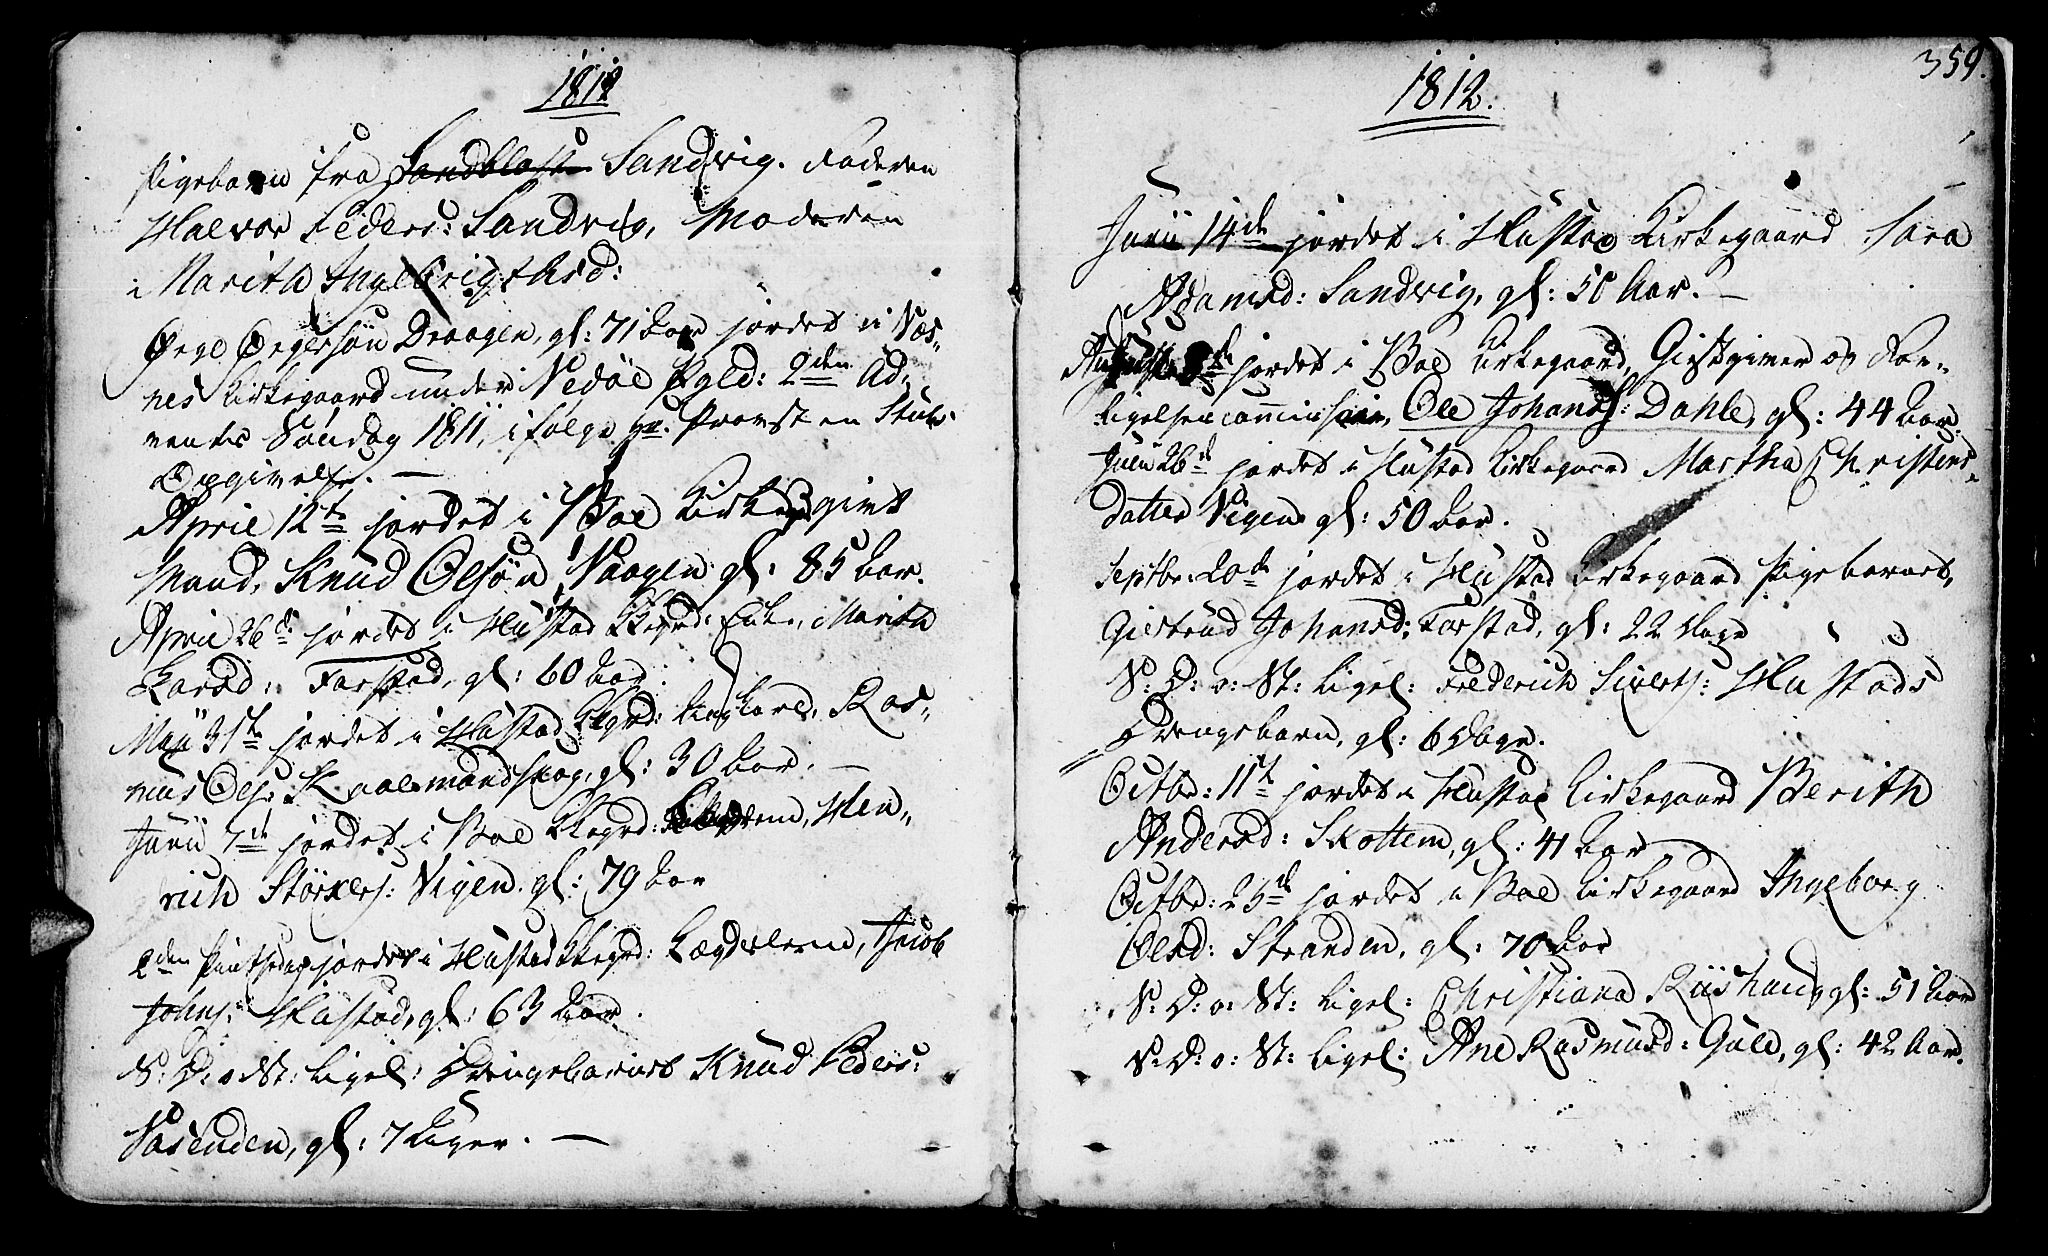 1812
Pigebarn fra Sandblaste Sandvig. Faderen
Halvor Peders: Sandvig, Moderen
Marith Ingebrigthsd:
Ørge Ørgersøn Draagen, gl: 71 Aar jordet i Næs„
nes Kirkegaard under Nedøe Pgld: 2den Ad„
vents Søndag 1811, ifølge Hr. Provsten Stubs
Opgivelse. —
April 12te jordet i Boe Kirkeg givt
Mand, Knud Olsøn Naagen gl: 85 Aar.
April 26de jordet i Hustad Kkgrd: Enke, Marith
Larsd: Farstad, gl: 60 Aar.
Maji 31te jordet i Hustad Kkgrd: Ungkarl, Ras„
mus Ols: Skaalemandskog, gl: 30 Aar. —
Junii 7de jordet i Boe Kkgrd: Hen„
rich Størkers: Vigen. gl: 79 Aar
2den Pintsedag jordet i Hustad Kkgrd: Lægdslem, Jacob
Johns: Hustad, gl: 63 Aar.
S: D: o St: Ligel: Drengebarnet Knud Peders:
Nasenden, gl: 7 Uger. —
359.
1812.
Junii 14de jordet i Hustad Kirkegaard Sara
Adamsd: Sandvig, gl: 50 Aar. —
August jordet i Boe Kirkegaard, Giestgiver og For„
ligelsescommissair, Ole Johans: Dahle, gl: 44 Aar.
Julii 26de jordet i Hustad Kirkegaard Martha Christens„
datter Vigen gl: 50 Aar.
Septbr: 20de jordet i Hustad Kirkegaard Pigebarnet,
Giertrud Johansd: Farstad, gl: 22 Dage
S: D: o: St: Ligel: Frederich Siverts: Hustads
Drengebarn, gl: 6 Dage.
Octbr: 11te jordet i Hustad Kirkegaard Berith
Andersd: Skottem, gl: 41 Aar
Octbr: 25de jordet i Boe Kirkegaard Ingeborg
Olsd: Stranden, gl: 70 Aar
S: D: o: St: Ligel: Christiana Riishaug, gl: 51 Aar
S: D: o: St: Ligel: Ane Rasmusd: Gule, gl: 42 Aar.